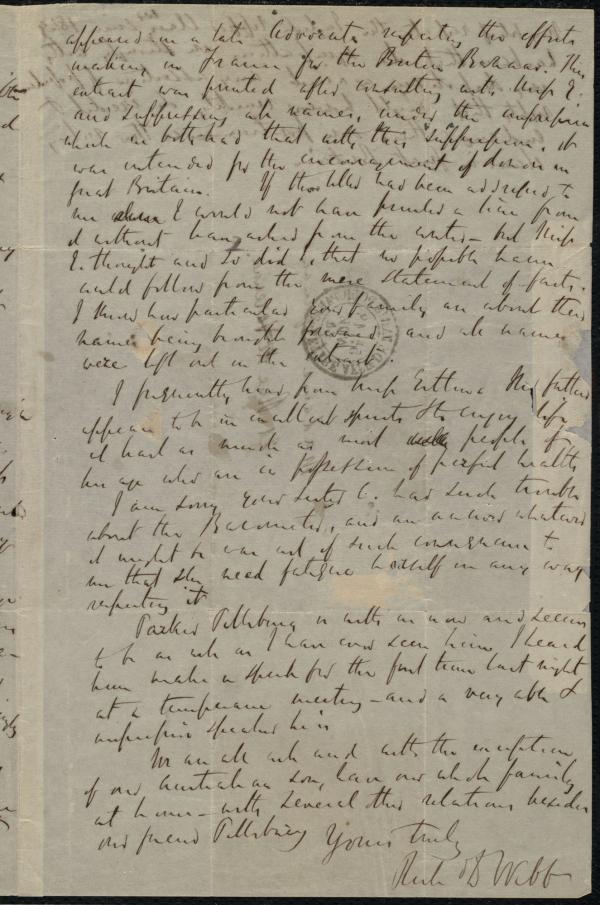 appeared in a late Advocate respecting the efforts
making in France for the Boston Bazaar. This
extract was printed after consulting with Miss E.
and suppressing all names, under the impression
which we both had that with this suppression, it
was intended for the encouragement of donors in
Great Britain. If the letter had been addressed to
me I would not have printed a line from
it without leave asked from the writer – but Miss
E. thought and so did I, that no possible harm
could follow from the mere statement of facts.
I know how particular your family are about their
names being brought forward, and all names
were left out in the extract.
I frequently hear from Miss Estlin. Her father
appears to be in excellent spirits & to enjoy life
at least as much as most people of
his age who are in possession of perfect health
I am sorry your sister C. had such trouble
about the Barometer, and am annoyed whatever
it might be was not of such consequence to
me that she need fatigue herself in any way
respecting it
Parker Pillsbury is with us now and seems
to be as well as I have ever seen him. I heard
him make a speech for the first time last night
at a temperance meeting – and a very able &
impressive speaker he is
We are all well and with the exception
of our Australian son, have our whole family
at home – with several other relations besides
our friend Pillsbury
Yours truly
Rich D Webb